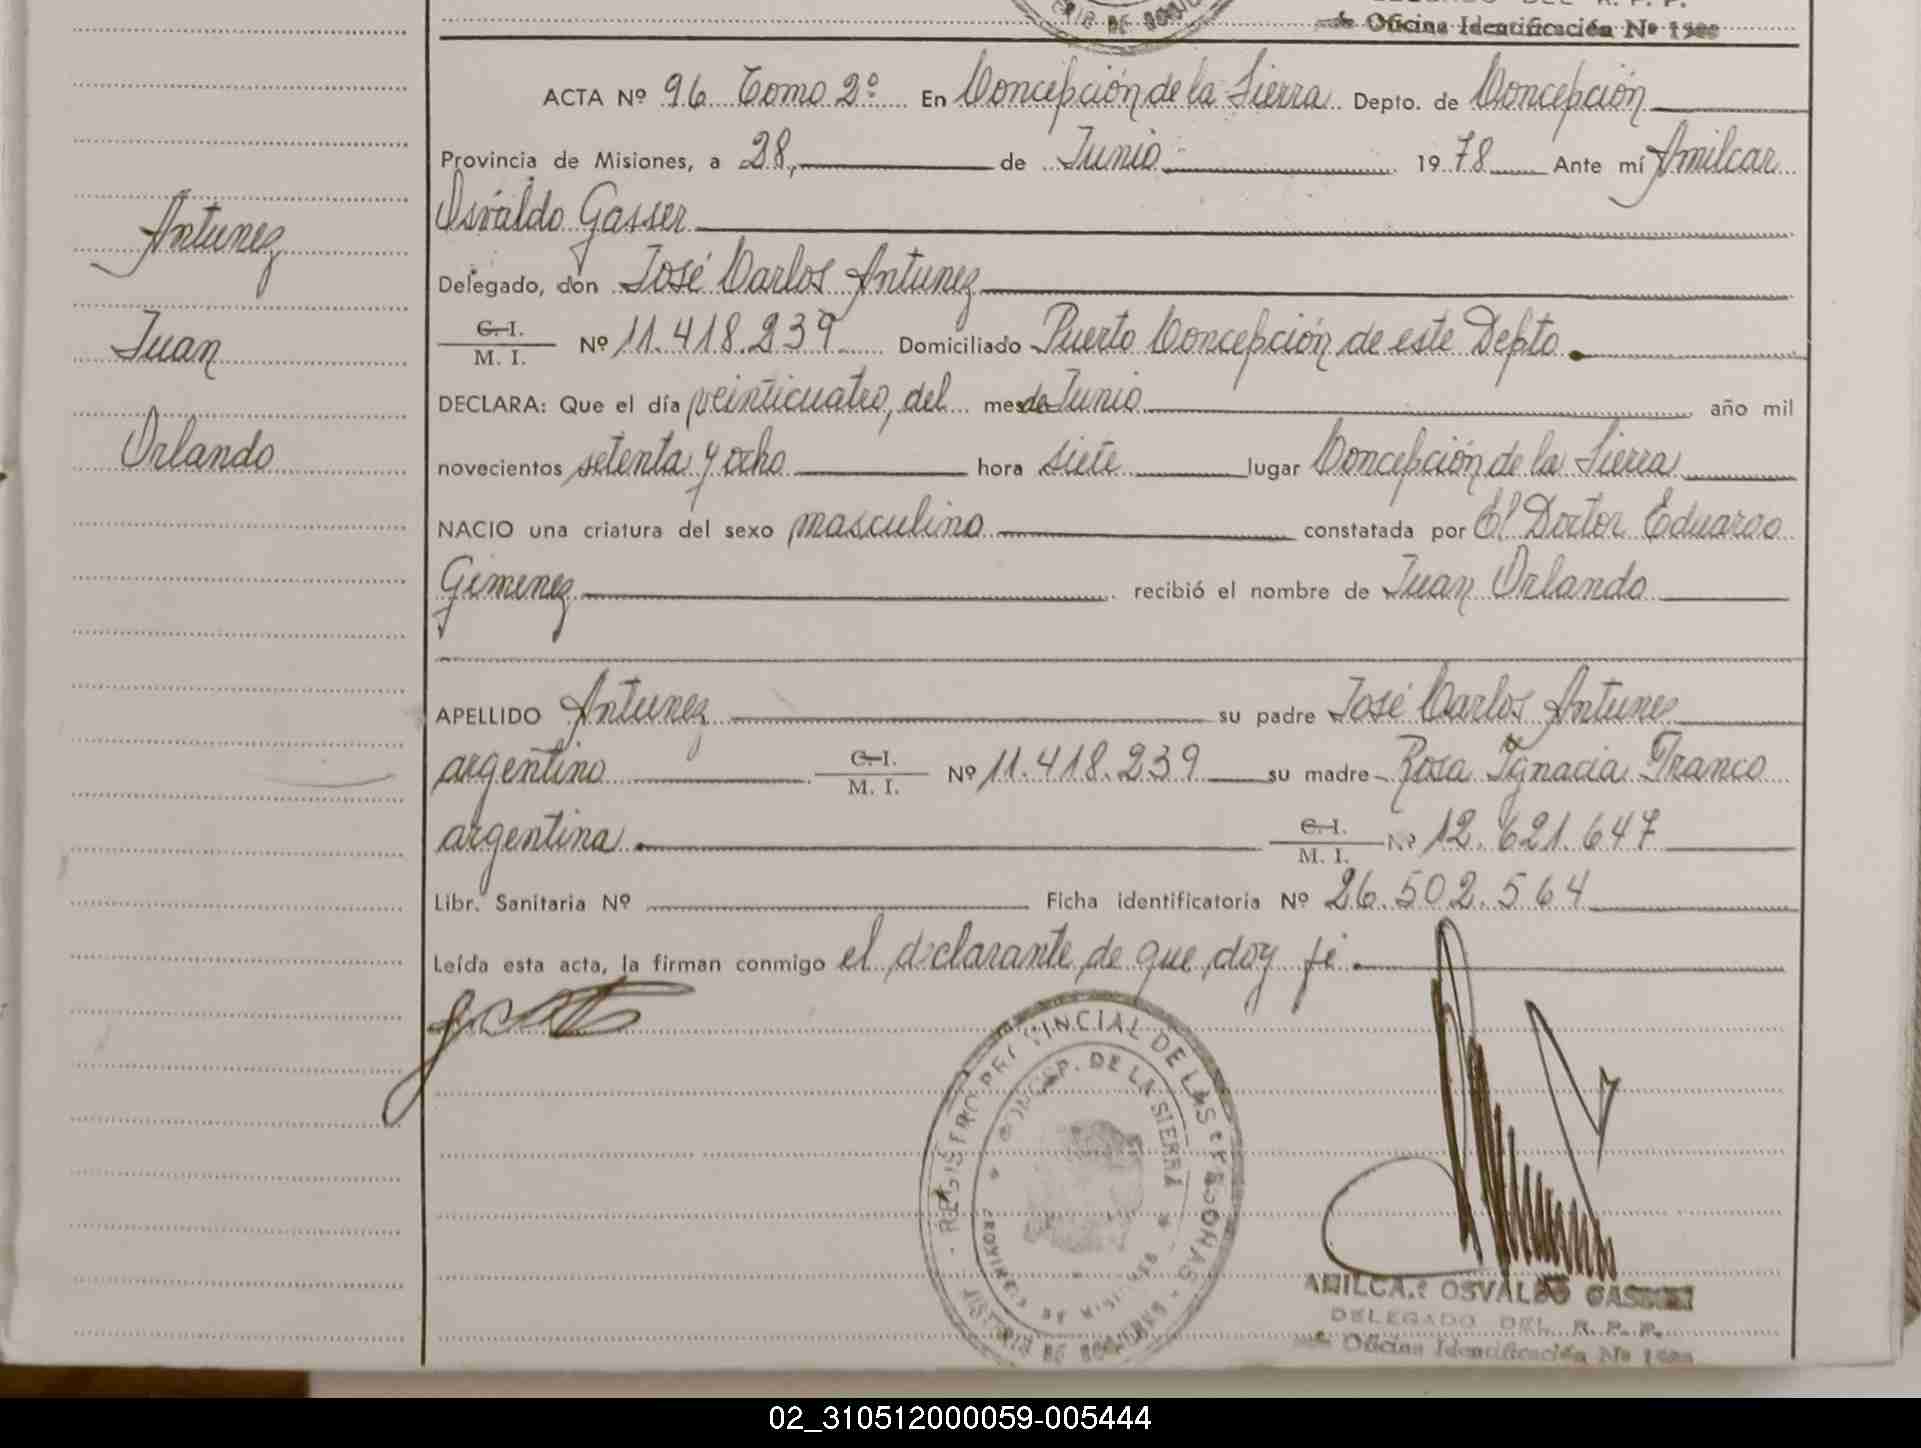 Oficina Identificación Nº 1988
ACTA Nº 96 Tomo 2º En Concepción de la Sierra Depto. de Concepción
Provincia de Misiones, a 28, de Junio 1978 Ante mí Amilcar
Osvaldo Gasser
Delegado, don José Carlos Antunez
C. I.
M. I. Nº 11.418.239 Domiciliado Puerto Concepción de este Depto.
DECLARA: Que el día veinticuatro, del mes de Junio año mil
novecientos setenta y ocho hora siete lugar Concepción de la Sierra
NACIO una criatura del sexo masculino constatada por El Doctor Eduardo
Gimenez recibió el nombre de Juan Orlando
APELLIDO Antunez su padre José Carlos Antunez
argentino C. I.
M. I. Nº 11.418.239 su madre Rosa Ignacia Franco
argentina. C. I.
M. I. Nº 12.621.647
Libr. Sanitaria Nº Ficha identificatoria Nº 26.502.564
Leída esta acta, la firman conmigo el declarante de que doy fé.
Antunez
Juan
Orlando
REGISTRO PROVINCIAL DE LAS PERSONAS
CONCEP. DE LA SIERRA
PROVINCIA DE MISIONES
AMILCAR OSVALDO GASSER
DELEGADO DEL R. P. P.
Oficina Identificación Nº 1988
02_310512000059-005444